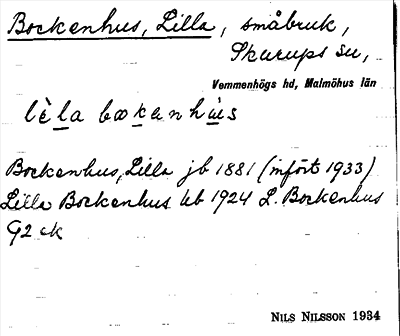 Bockenhus, Lilla, småbruk,
Skurups sn,
Vemmenhögs hd, Malmöhus län
Bockenhus, Lilla jb 1881 (infört 1933)
Lilla Bockenhus hb 1924 L. Bockenhus
G2 ek
NILS NILSSON 1934